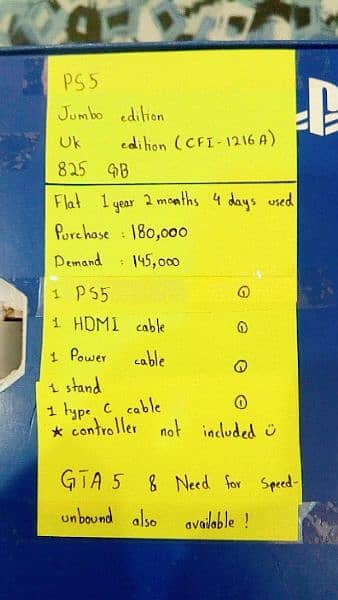 PS5
Jumbo edition
Uk edition (CFI-1216A)
825 GB
Flat 1 year 2 months 4 days used
Purchase : 180,000
Demand : 145,000
1 PS5 ①
1 HDMI cable ①
1 Power cable ①
1 stand
1 type C cable ①
* controller not included ü
GTA 5 & Need for Speed-
unbound also available !